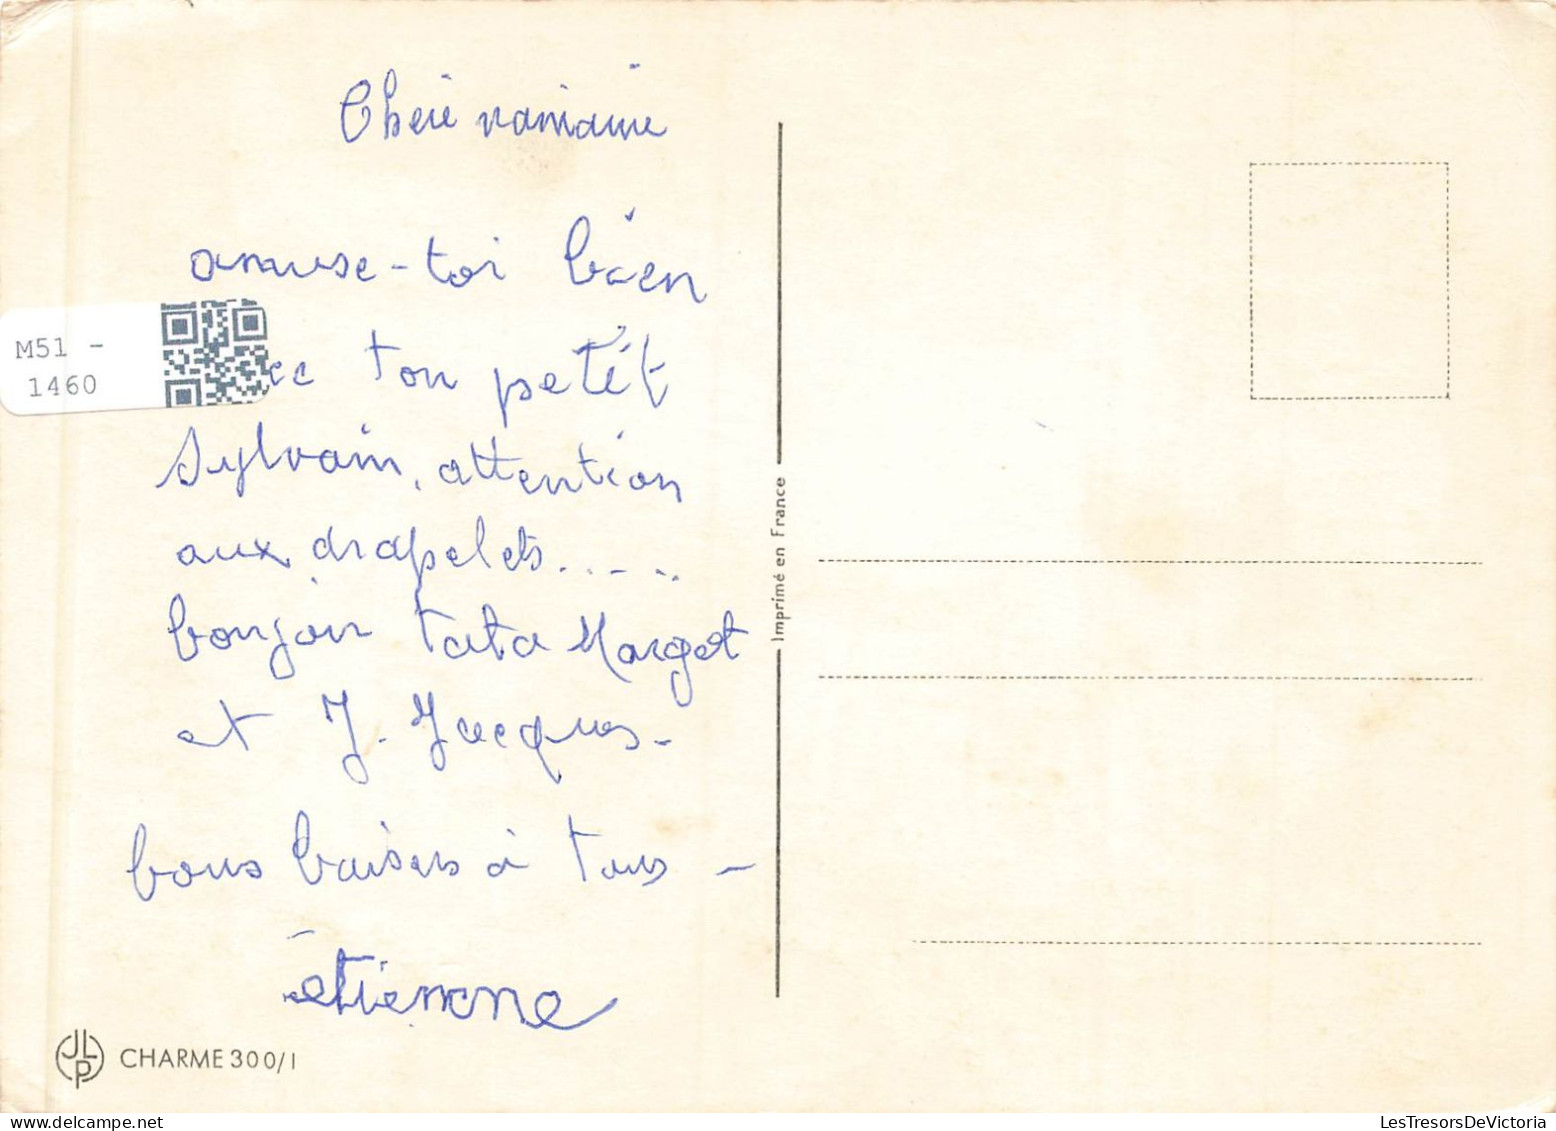 Chère
amuse-toi bien
ton petit
Sylvain, attention
aux drapelets.....
bonjour tata Margot
et J. Jacques-
bons baisers à tous -
étienne
M51 -
1460
Imprimé en France
JLP CHARME 300/1
LesTresorsDeVictoria